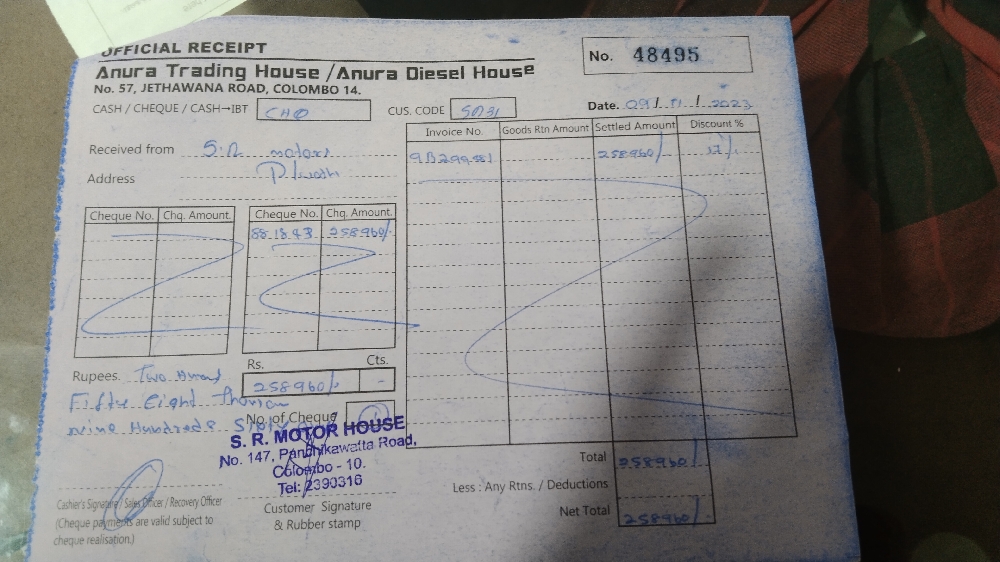 OFFICIAL RECEIPT
No. 48495
Anura Trading House / Anura Diesel House
No. 57, JETHAWANA ROAD, COLOMBO 14.
CASH / CHEQUE / CASH-IBT CHQ
CUS. CODE
Date. 09/11/2023
Received from S.R motors
Address
Invoice No. Goods Rtn Amount Settled Amount Discount %
258960/-
Cheque No. Chq. Amount
Cheque No. Chq. Amount
88.18.43 258960/-
Rs. Cts.
258960/- -
Rupees. Two
Fifty Eight
nine Hundrede
No. of Cheque 1
S. R. MOTOR HOUSE
No. 147, Panchikawatta Road,
Colombo - 10.
Tel: 2390316
Cashier's Signature / Sales Officer / Recovery Officer
(Cheque payments are valid subject to
cheque realisation.)
Customer Signature
& Rubber stamp
Total 258960/-
Less : Any Rtns. / Deductions
Net Total 258960/-